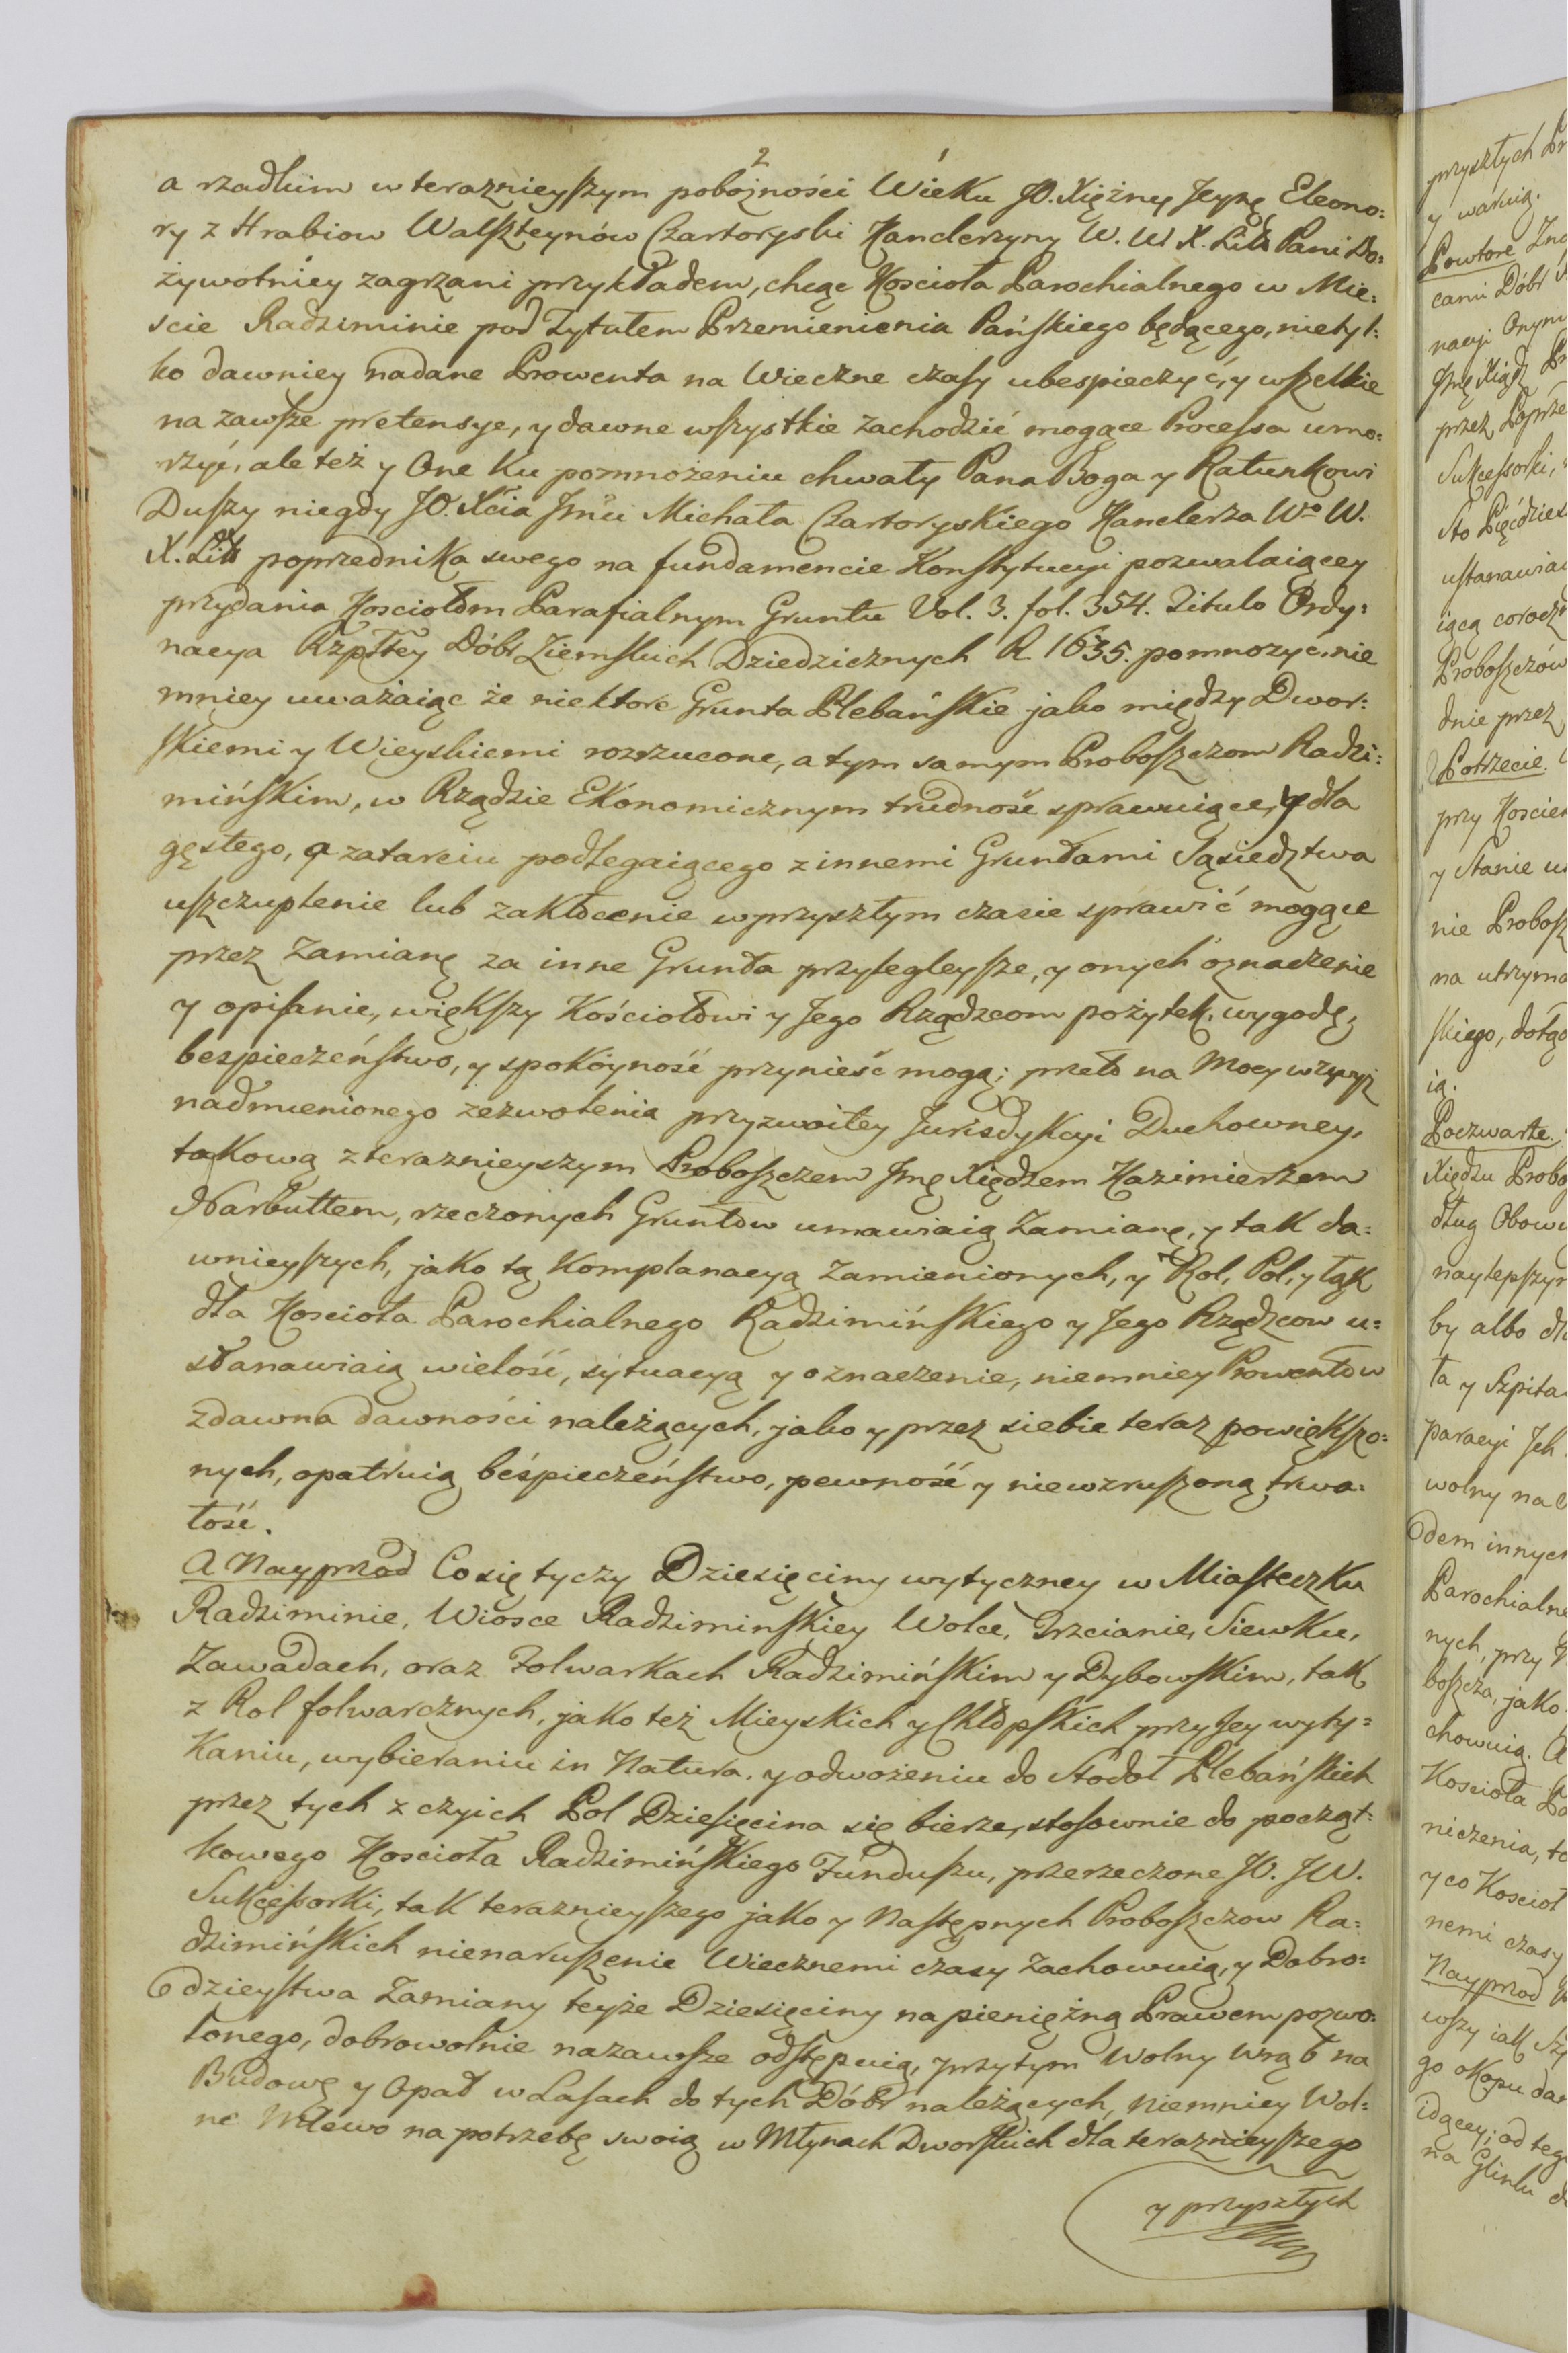 2
a rzadkim w teraznieyszym pobożności Wieku JO. Xiężney Jeymę Eleono:
ry z Hrabiow Walszteynów Czartoryski Kanclerzyny W. W X. Litt Pani Do:
żywotniey zagrzani przykładem, chcąc Kościoła Parochialnego w Mie:
scie Radziminie pod Tytułem Przemienienia Pańskiego będącego, nietyl:
ko dawniey nadane Prowenta na Wieczne czasy ubespieczyć, y wszelkie
na zawsze pretensye, y dawne wszystkie zachodzić mogące Processa umo:
rzyć, ale też y One Ku pomnożeniu chwały Pana Boga y Ratunkowi
Duszy niegdy JO. Xcia Jmci Michała Czartoryskiego Kanclerza Wo W.
X. Litt poprzednika swego na fundamencie Konstytucyi pozwalaiącey
przydania Kosciołom Parafialnym Gruntu Vol. 3. fol. 354. Titulo Ordy:
nacya Rzpltey Dóbr Ziemskich Dziedzicznych R. 1635. pomnozyć, nie
mniey uważaiąc że niektore Grunta Plebańskie jako między Dwor:
skiemi y Wieyskiemi rozrzucone, a tym samym Proboszczom Radzi:
mińskim, w Rządzie Ekonomicznym trudność sprawuiące, y dla
gęstego, a zatarciu podlegaiącego z innemi Gruntami Sąsiedztwa
uszczuplenie lub zakłocenie w przyszłym czasie sprawić mogące
przez Zamianę za inne Grunta przylegleysze, y onych oznaczenie
y opisanie, większy Kościołowi y Jego Rządzcom pożytek, wygodę,
bespieczeństwo, y spokoyność przynieść mogą; przeto na Mocy wzwyż
nadmienionego zezwolenia przyzwoitey Jurisdykcyi Duchowney,
takową z teraznieyszym Proboszczem Jmę Xiędzem Kazimierzem
Narbuttem, rzeczonych Gruntow umawiaią Zamianę, y tak da:
wnieyszych, jako tą Komplanacyą Zamienionych, y Rol, Pol, y Łąk
dla Kosciola Parochialnego Radzimińskiego y Jego Rządzcow u:
stanawiaią wielość, sytuacyą y oznaczenie, niemniey Prowentow
zdawna dawności należących, jako y przez siebie teraz powiększo:
nych, opatruią beśpieczeństwo, pewność y niewzruszoną trwa:
łość.
A Nayprzod Co się tyczy Dziesięciny wytyczney w Miasteczku
Radziminie, Wiosce Radziminskiey Wolce, Trzcianie, Siewku,
Zawadach, oraz Folwarkach Radzimińskim y Dybowskim, tak
z Rol folwarcznych, jako też Mieyskich y Chłopskich przy Jey wyty:
Kaniu, wybieraniu in Natura, y odwożeniu do Stodoł Plebańskich
przez tych z czyich Pol Dziesięcina się bierze, stosownie do począt:
kowego Kosciola Radzimińskiego Funduszu, przerzeczone JO. JW.
Sukcessorki, tak teraznieyszego jako y Następnych Proboszczow Ra:
dzimińskich nienaruszenie Wiecznemi czasy Zachowuią, y Dobro:
dzieystwa Zamiany teyże Dziesięciny na pieniężną Prawem pozwo:
lonego, dobrowolnie nazawsze odstępuią, przytym Wolny Wrąb na
Budowę y Opał w Lasach do tych Dóbr należących, niemniey Wol:
ne Mlewo na potrzebę swoią w Młynach Dworskich dla teraznieyszego
y przyszłych
przyszłych
y waruią.
Powtore
cami Dóbr
nacyi Onym
Jmę Xiądz
przez
Sukcessorki,
Sto
ustanawiai
iącą
Proboszczów
dnie przez
Potrzecie.
przy Koscie
y Stanie
nie
na utrzyma
skiego,
ią.
Poczwarte.
Xiędzu
dług Obow
naylepszy
by albo
ta y Szpita
paracyi Jch
wolny na
dem innych
Parochialne
nych, przy
boszcza, jako
chowuią. A
Kosciola
niczenia,
y co Kosciol
nemi czasy
Nayprzod
wszy iak
go okopu
idącey; od
na Glinku